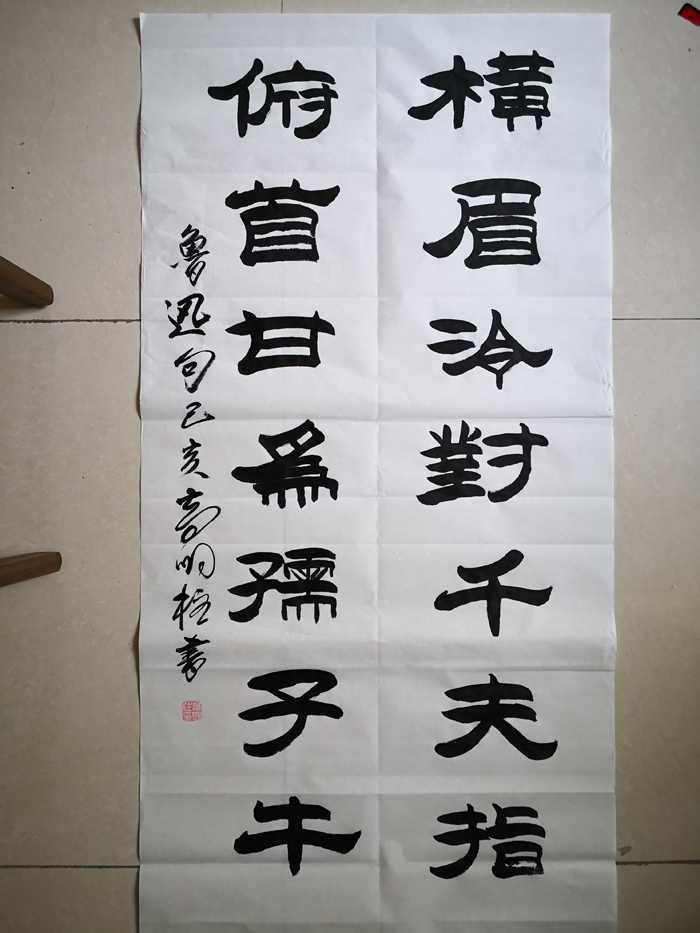 橫眉冷對千夫指
俯首甘為孺子牛
魯迅句己亥高明柱書